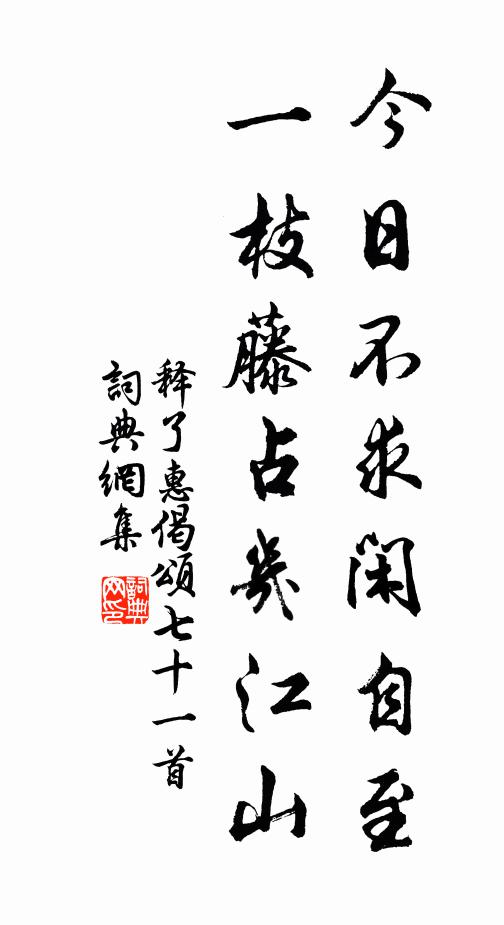 今日不求閑自至
一枝藤占幾江山
释了惠偈頌七十一首
詞典網集